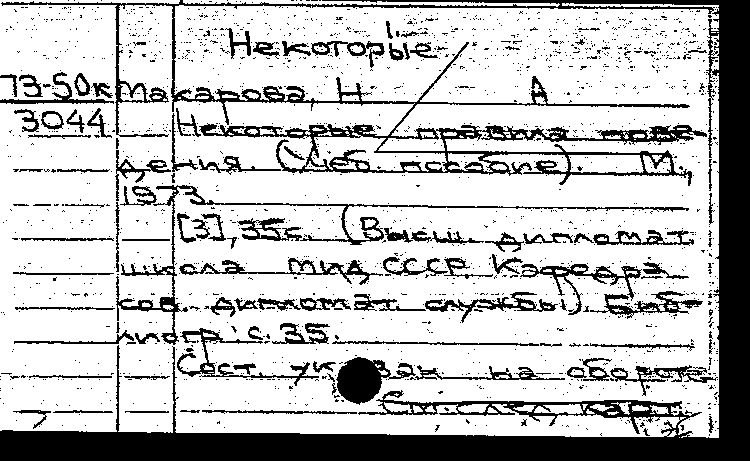 Некоторые
73-50к Макарова, Н А
3044 Некоторые правила пове-
дения. (Учеб. пособие). М.,
1973.
[3], 35с. (Высш. дипломат.
школа МИД СССР. Кафедра
сов. дипломат. службы). Биб-
лиогр.: с. 35.
Сост. указан на обороте
См. след. карт.